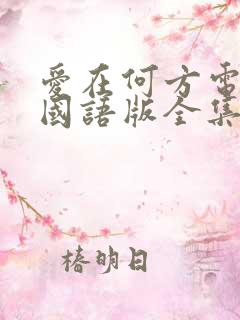 愛在何方電
國語版全集
椿明日